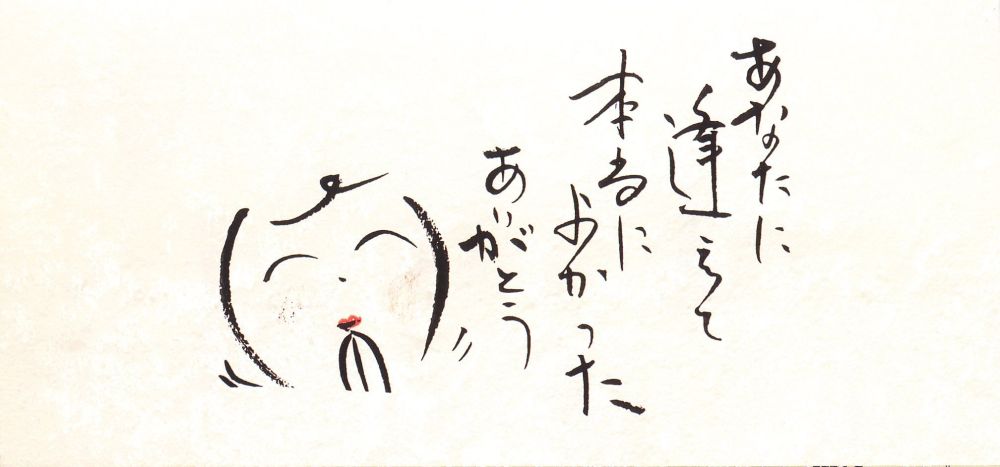 あなたに
逢えて
本当に
よかった
ありがとう